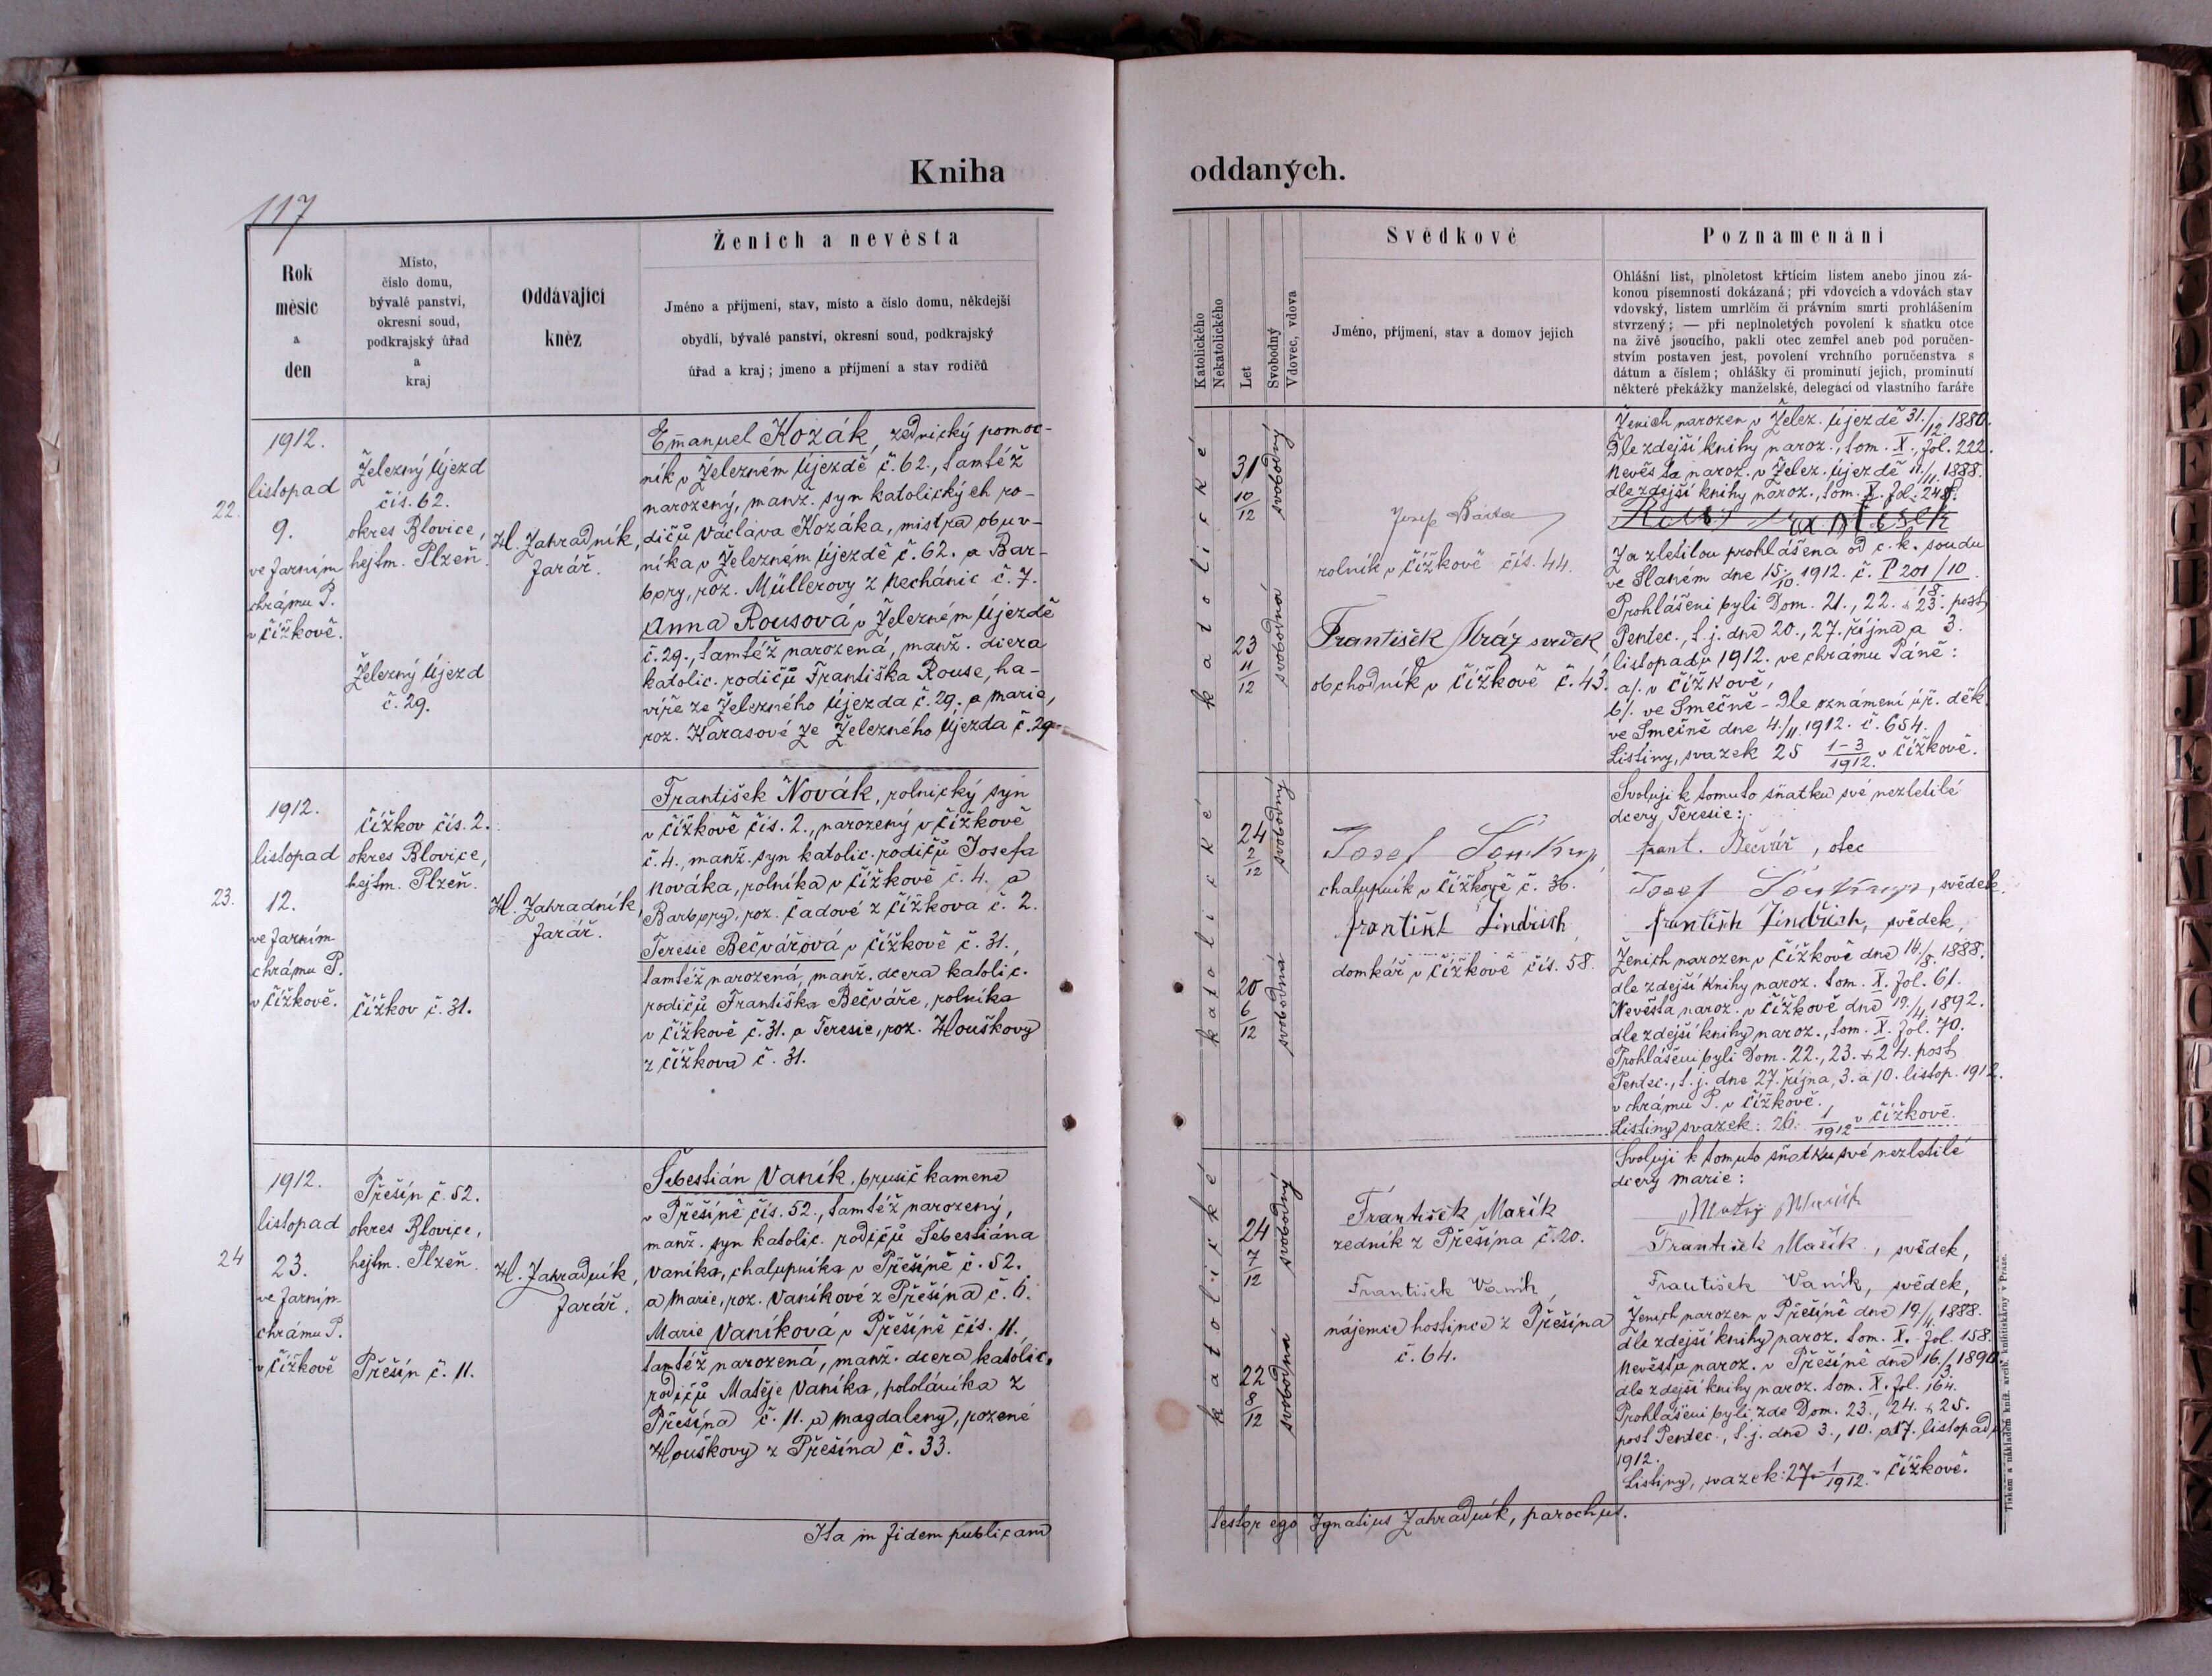 Kniha oddaných.
117
Rok
měsíc
a
den
Místo,
číslo domu,
bývalé panství,
okresní soud,
podkrajský úřad
a
kraj
Oddávající
kněz
Ženich a nevěsta
Jméno a příjmení, stav, místo a číslo domu, někdejší
obydlí, bývalé panství, okresní soud, podkrajský
úřad a kraj; jmeno a příjmení a stav rodičů
Katolického
Nekatolického
Let
Svobodný
Vdovec, vdova
Svědkové
Jméno, příjmení, stav a domov jejich
Poznamenání
Ohlášní list, plnoletost křtícím listem anebo jinou zá-
konou písemností dokázaná; při vdovcích a vdovách stav
vdovský, listem umrlčím či právním smrti prohlášením
stvrzený; — při neplnoletých povolení k sňatku otce
na živě jsoucího, pakli otec zemřel aneb pod poručen-
stvím postaven jest, povolení vrchního poručenstva s
dátum a číslem; ohlášky či prominutí jejich, prominutí
některé překážky manželské, delegací od vlastního faráře
22.
1912.
listopad
9.
ve farním
chrámu P.
v Čížkově.
Železný Újezd
čís. 62.
okres Blovice,
hejtm. Plzeň.
Železný Újezd
č. 29.
H. Zahradník,
farář.
Emanuel Kozák, zednický pomoc-
ník v Železném Újezdě č. 62., tamtéž
narozený, manž. syn katolických ro-
dičů Václava Kozáka, mistra obuv-
níka v Železném Újezdě č. 62. a Bar-
bory, roz. Müllerovy z Nechánic č. 7.
Anna Rousová v Železném Újezdě
č. 29., tamtéž narozená, manž. dcera
katolic. rodičů Františka Rouse, ha-
víře ze Železného Újezda č. 29. a Marie,
roz. Karasové ze Železného Újezda č. 29.
katolické
31
10/12
svobodný
katolické
23
11/12
svobodná
Josef Bárta
rolník v Čížkově čís. 44.
František Mráz svědek
obchodník v Čížkově č. 43.
Ženich narozen v Želez. Újezdě 31./12. 1880.
Dle zdejší knihy naroz., tom. X., fol. 222.
Nevěsta naroz. v Želez. Újezdě 11./11. 1888.
dle zdejší knihy naroz., tom. X. fol. 248.
Za zletilou prohlášena od c. k. soudu
ve Slaném dne 15./10. 1912. č. P 201/10
18.
Prohlášeni byli Dom. 21., 22. & 23. post
Pentec., t. j. dne 20., 27. října a 3.
listopadu 1912. ve chrámu Páně:
a/. v Čížkově,
b/. ve Smečně - Dle oznámení úř. děk.
ve Smečně dne 4./11. 1912. č. 654.
Listiny, svazek 25 1-3/1912. v Čížkově.
23.
1912.
listopad
12.
ve farním
chrámu P.
v Čížkově.
Čížkov čís. 2.
okres Blovice,
hejtm. Plzeň.
Čížkov č. 31.
H. Zahradník,
farář.
František Novák, rolnický syn
v Čížkově čís. 2., narozený v Čížkově
č. 4., manž. syn katolic. rodičů Josefa
Nováka, rolníka v Čížkově č. 4. a
Barbory, roz. Čadové z Čížkova č. 2.
Teresie Bečvářová v Čížkově č. 31.,
tamtéž narozená, manž. dcera katolic.
rodičů Františka Bečváře, rolníka
v Čížkově č. 31. a Teresie, roz. Houškovy
z Čížkova č. 31.
katolické
24
2/12
svobodný
katolické
20
6/12
svobodná
Josef
chalupník v Čížkově č. 36.
František Jindřich
domkář v Čížkově čís. 58.
Svoluji k tomuto sňatku své nezletilé
dcery Teresie:
Frant. Bečvář, otec
Josef , svědek.
František Jindřich, svědek,
Ženich narozen v Čížkově dne 16/8. 1888.
dle zdejší knihy naroz. tom. X. fol. 61.
Nevěsta naroz. v Čížkově dne 19./4. 1892.
dle zdejší knihy naroz., tom. X. fol. 70.
Prohlášeni byli Dom. 22., 23. & 24. post
Pentec., t. j. dne 27. října, 3. a 10. listop. 1912.
v chrámu P. v Čížkově.
Listiny svazek: 26. 1/1912 v Čížkově.
24
1912.
listopad
23.
ve farním
chrámu P.
v Čížkově
Přešín č. 52.
okres Blovice,
hejtm. Plzeň.
Přešín č. 11.
H. Zahradník,
farář.
Šebestián Vaník, brusič kamene
v Přešíně čís. 52., tamtéž narozený,
manž. syn katolic. rodičů Šebestiána
Vaníka, chalupníka v Přešíně č. 52.
a Marie, roz. Vaníkové z Přešína č. 6.
Marie Vaníková v Přešíně čís. 11.
tamtéž narozená, manž. dcera katolic.
rodičů Matěje Vaníka, pololáníka z
Přešína č. 11. a Magdaleny, rozené
Houškovy z Přešína č. 33.
katolické
24
7/12
svobodný
katolické
22
8/12
svobodná
František Mařík
zedník z Přešína č. 20.
František Vaník,
nájemce hostince z Přešína
č. 64.
Svoluji k tomuto sňatku své nezletilé
dcery Marie:
Matěj Vaník
František Mařík, svědek,
František Vaník, svědek,
Ženich narozen v Přešíně dne 19./4. 1888.
dle zdejší knihy naroz. tom. X. fol. 158.
Nevěsta naroz. v Přešíně dne 16./3. 1890.
dle zdejší knihy naroz. tom. X. fol. 164.
Prohlášeni byli zde Dom. 23., 24. & 25.
post Pentec., t. j. dne 3., 10. a 17. listopadu
1912.
Listiny, svazek: 27. 1/1912. v Čížkově.
Ita in fidem publicam testor ego Ignatius Zahradník, parochus.
Tiskem a nákladem kníž. arcib. knihtiskárny v Praze.